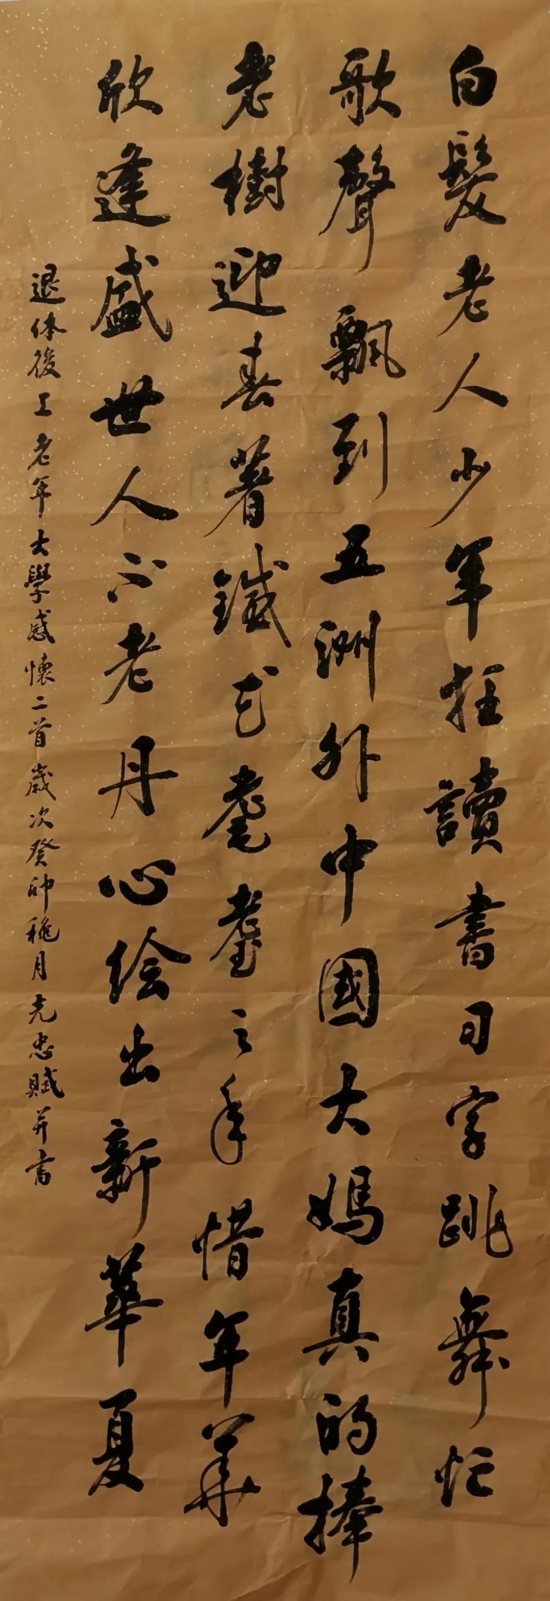 白髮老人少年狂讀書習字跳舞忙
歌聲飄到五洲外中國大媽真的捧
老樹迎春著鐵花耄耋之年惜年華
欣逢盛世人不老丹心绘出新華夏
退休後上老年大學感懷二首歲次癸卯穐月光忠賦并書